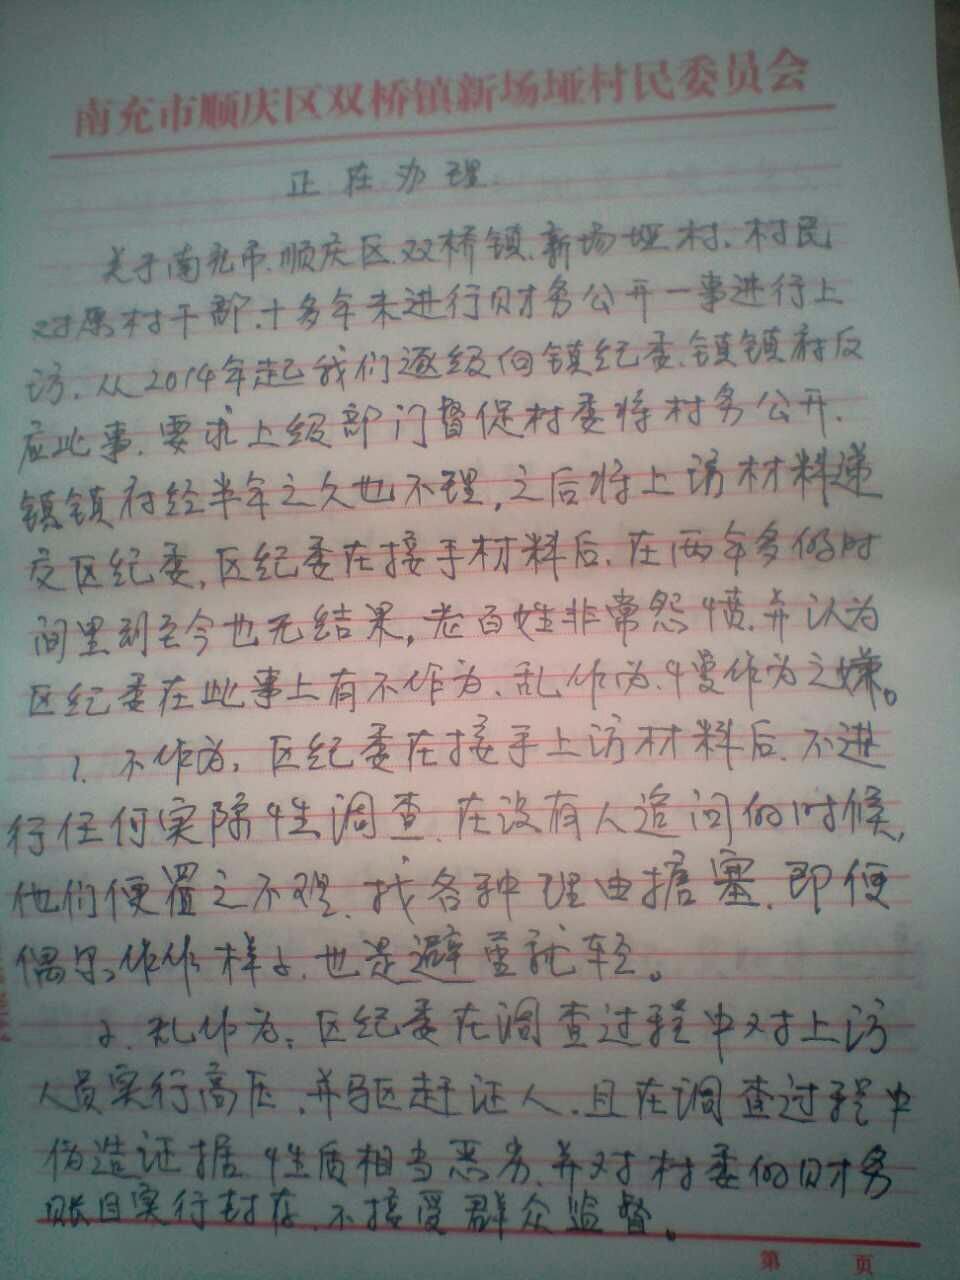 南充市顺庆区双桥镇新场垭村民委员会
正在办理.
关于南充市.顺庆区.双桥镇.新场垭村.村民
对原村干部.十多年未进行财务公开一事进行上
访.从2014年起我们逐级向镇纪委.镇镇府反
应此事.要求上级部门督促村委将村务公开.
镇镇府经半年之久也不理,之后将上访材料递
交区纪委,区纪委在接手材料后.在两年多的时
间里到至今也无结果,老百姓非常怨愤.并认为
区纪委在此事上有不作为、乱作为、慢作为之嫌。
1.不作为:区纪委在接手上访材料后.不进
行任何实际性调查.在没有人追问的时候,
他们便置之不理.找各种理由搪塞.即便
偶尔作作样子.也是避重就轻。
2.乱作为:区纪委在调查过程中对上访
人员实行高压.并驱赶证人.且在调查过程中
伪造证据.性质相当恶劣.并对村委的财务
账目实行封存.不接受群众监督。
第 页